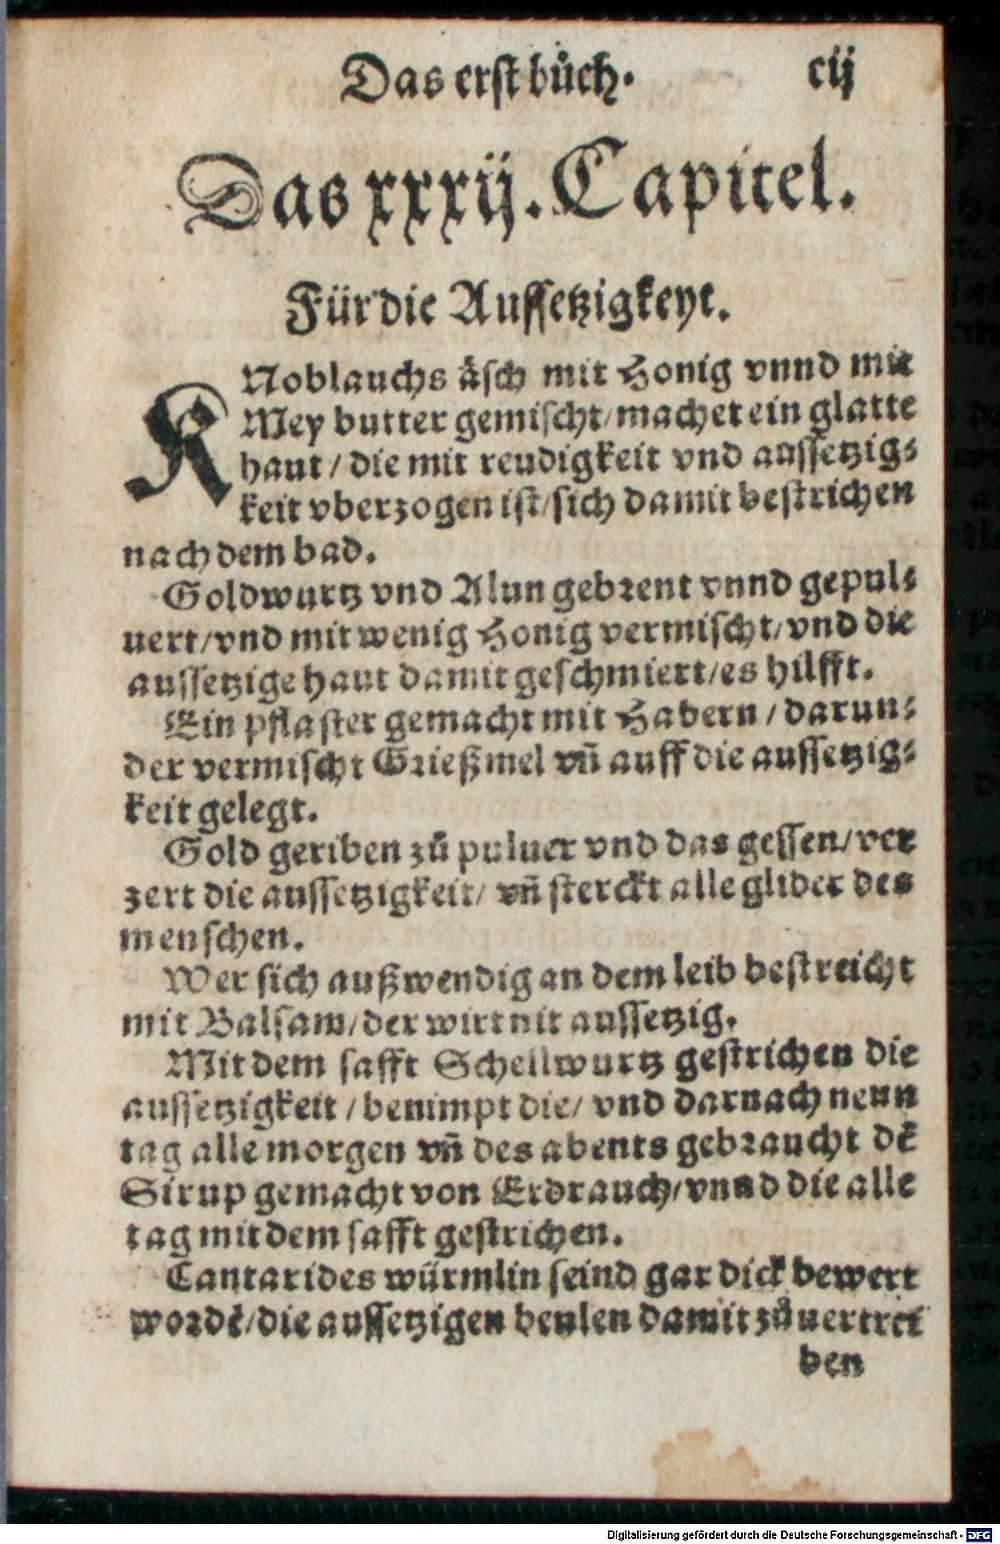 Das erst bůch. cij
Das xxxij. Capitel.
Für die Aussetzigkeyt.
KNoblauchs äsch mit Honig vnnd mit
Mey butter gemischt/machet ein glatte
haut/die mit reudigkeit vnd aussetzig⸗
keit vberzogen ist/sich damit bestrichen
nach dem bad.
Goldwurtz vnd Alun gebrent vnnd gepul⸗
uert/vnd mit wenig Honig vermischt/vnd die
aussetzige haut damit geschmiert/es hilfft.
Ein pflaster gemacht mit Habern/darun⸗
der vermischt Grießmel vñ auff die aussetzig⸗
keit gelegt.
Gold geriben zů puluer vnd das gessen/ver
zert die aussetzigkeit/vñ sterckt alle glider des
menschen.
Wer sich außwendig an dem leib bestreicht
mit Balsam/der wirt nit aussetzig.
Mit dem safft Schellwurtz gestrichen die
aussetzigkeit/benimpt die/vnd darnach neun
tag alle morgen vñ des abents gebraucht dẽ
Sirup gemacht von Erdrauch/vnnd die alle
tag mit dem safft gestrichen.
Cantarides würmlin seind gar dick bewert
wordẽ/die aussetzigen beulen damit zůuertrei
ben
Digitalisierung gefördert durch die Deutsche Forschungsgemeinschaft - DFG